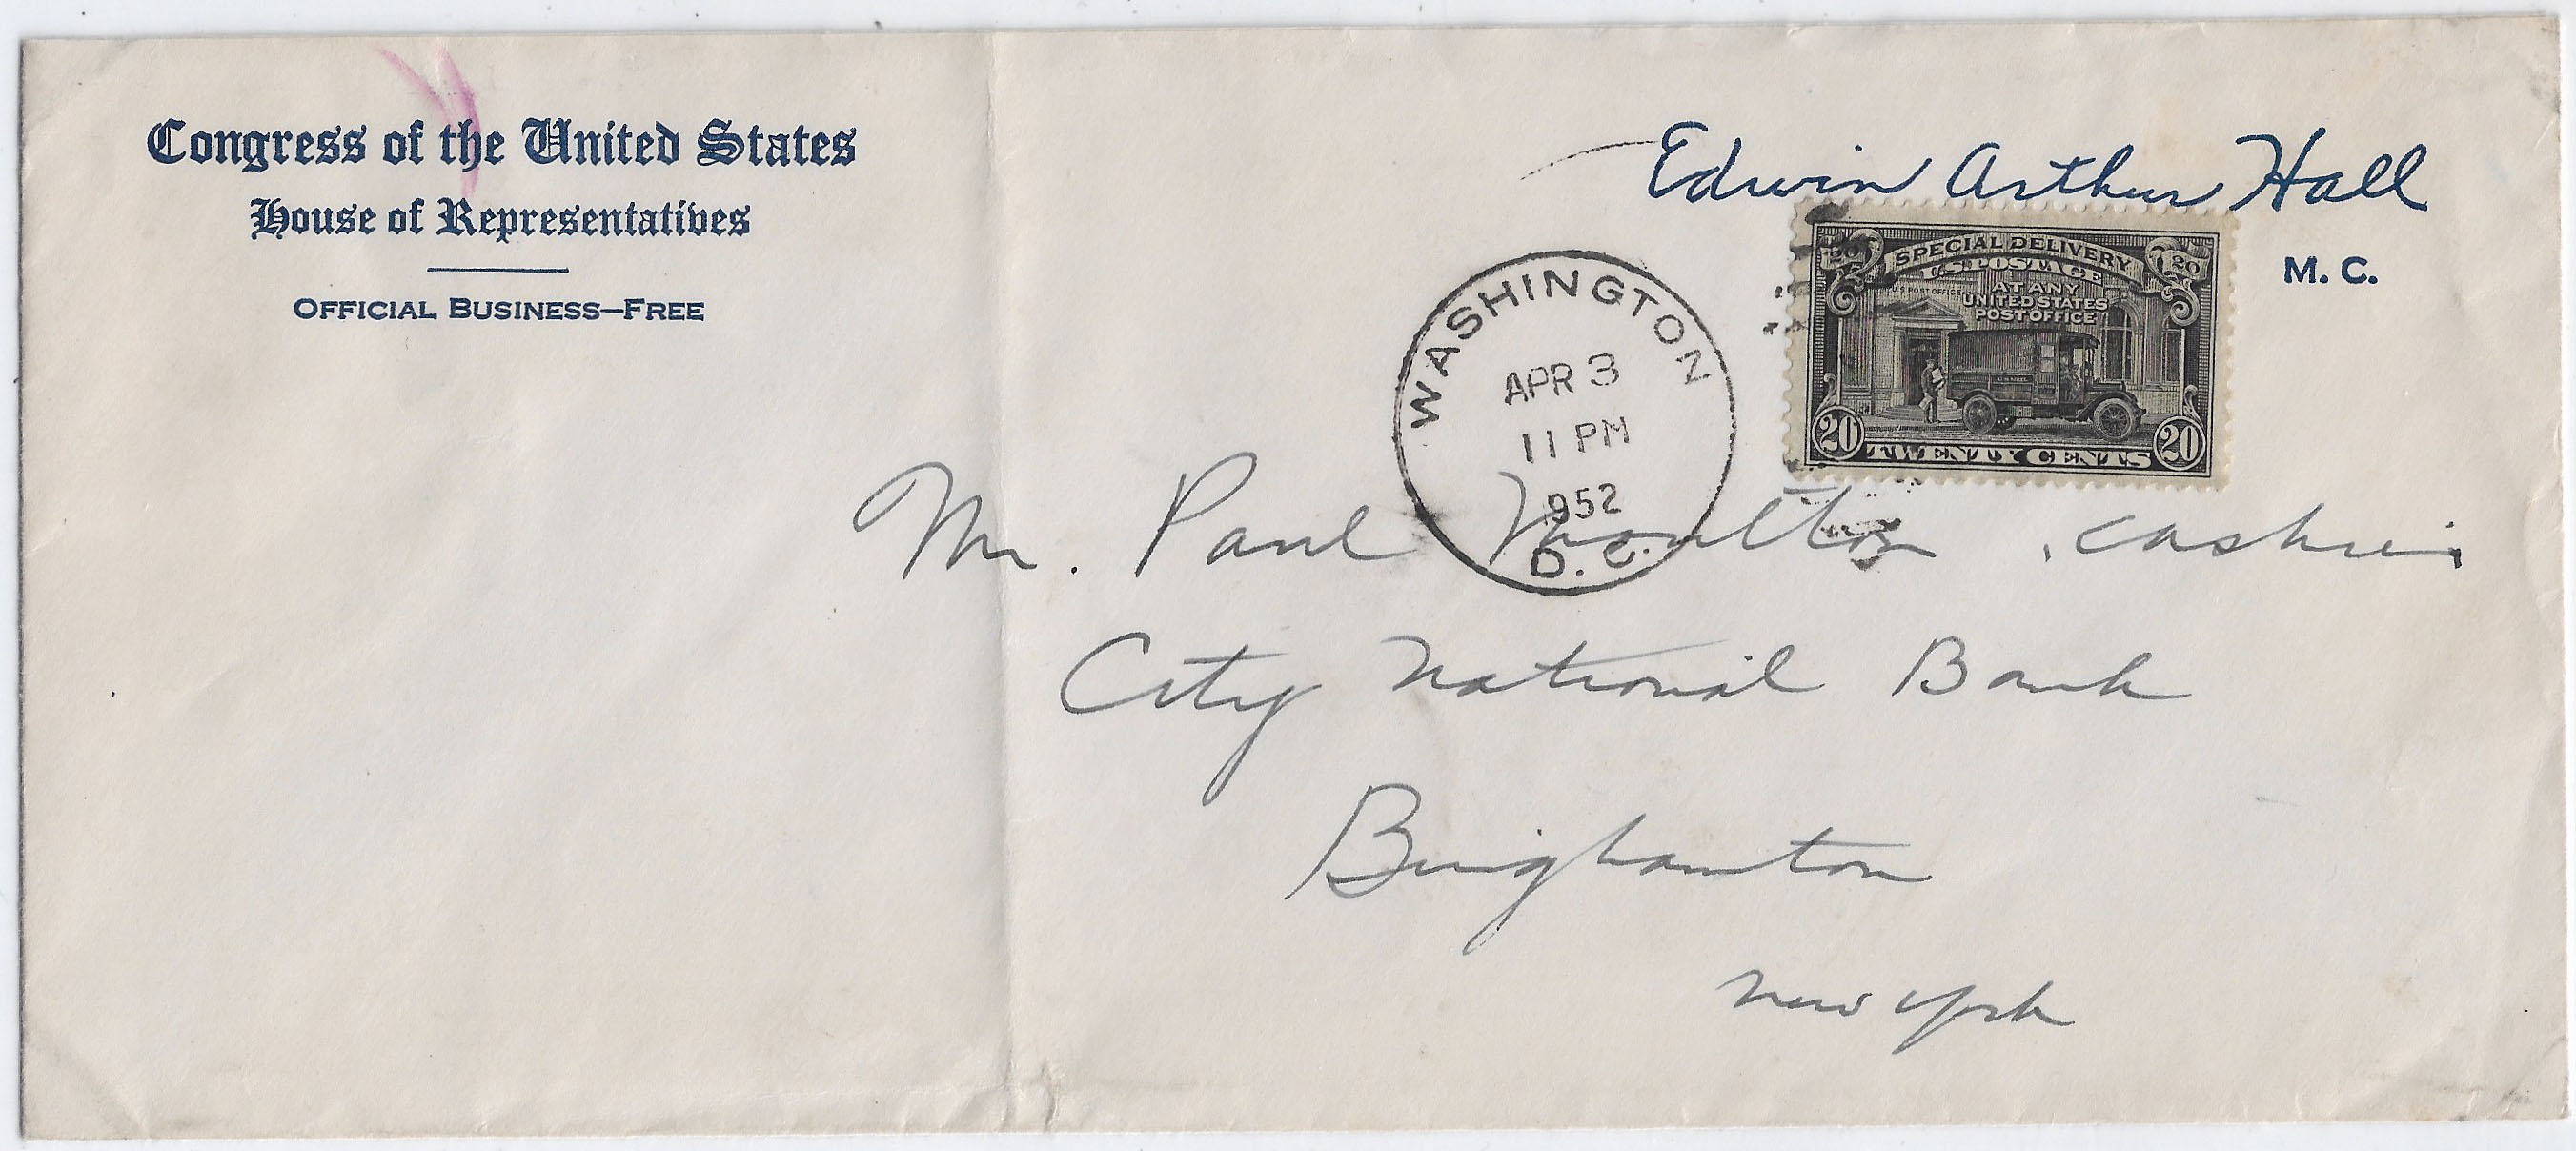 Congress of the United States
House of Representatives
OFFICIAL BUSINESS—FREE
Edwin Arthur Hall
M. C.
20 SPECIAL DELIVERY 20
U.S. POSTAGE
AT ANY
UNITED STATES
POST OFFICE
U.S. POST OFFICE
20 TWENTY CENTS 20
WASHINGTON
APR 3
11 PM
1952
D. C.
Mr. Paul Moulton, cashier
City National Bank
Binghamton
New York